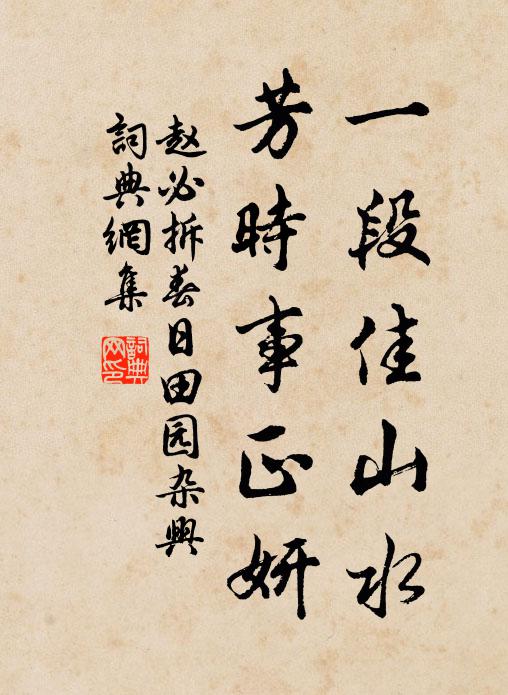 一段佳山水
芳時事正妍
赵必拆春日田园杂興
詞典網集
詞典網印